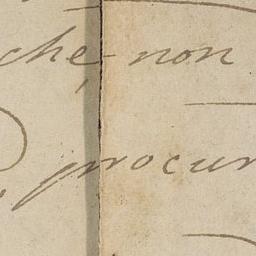 che non
procur